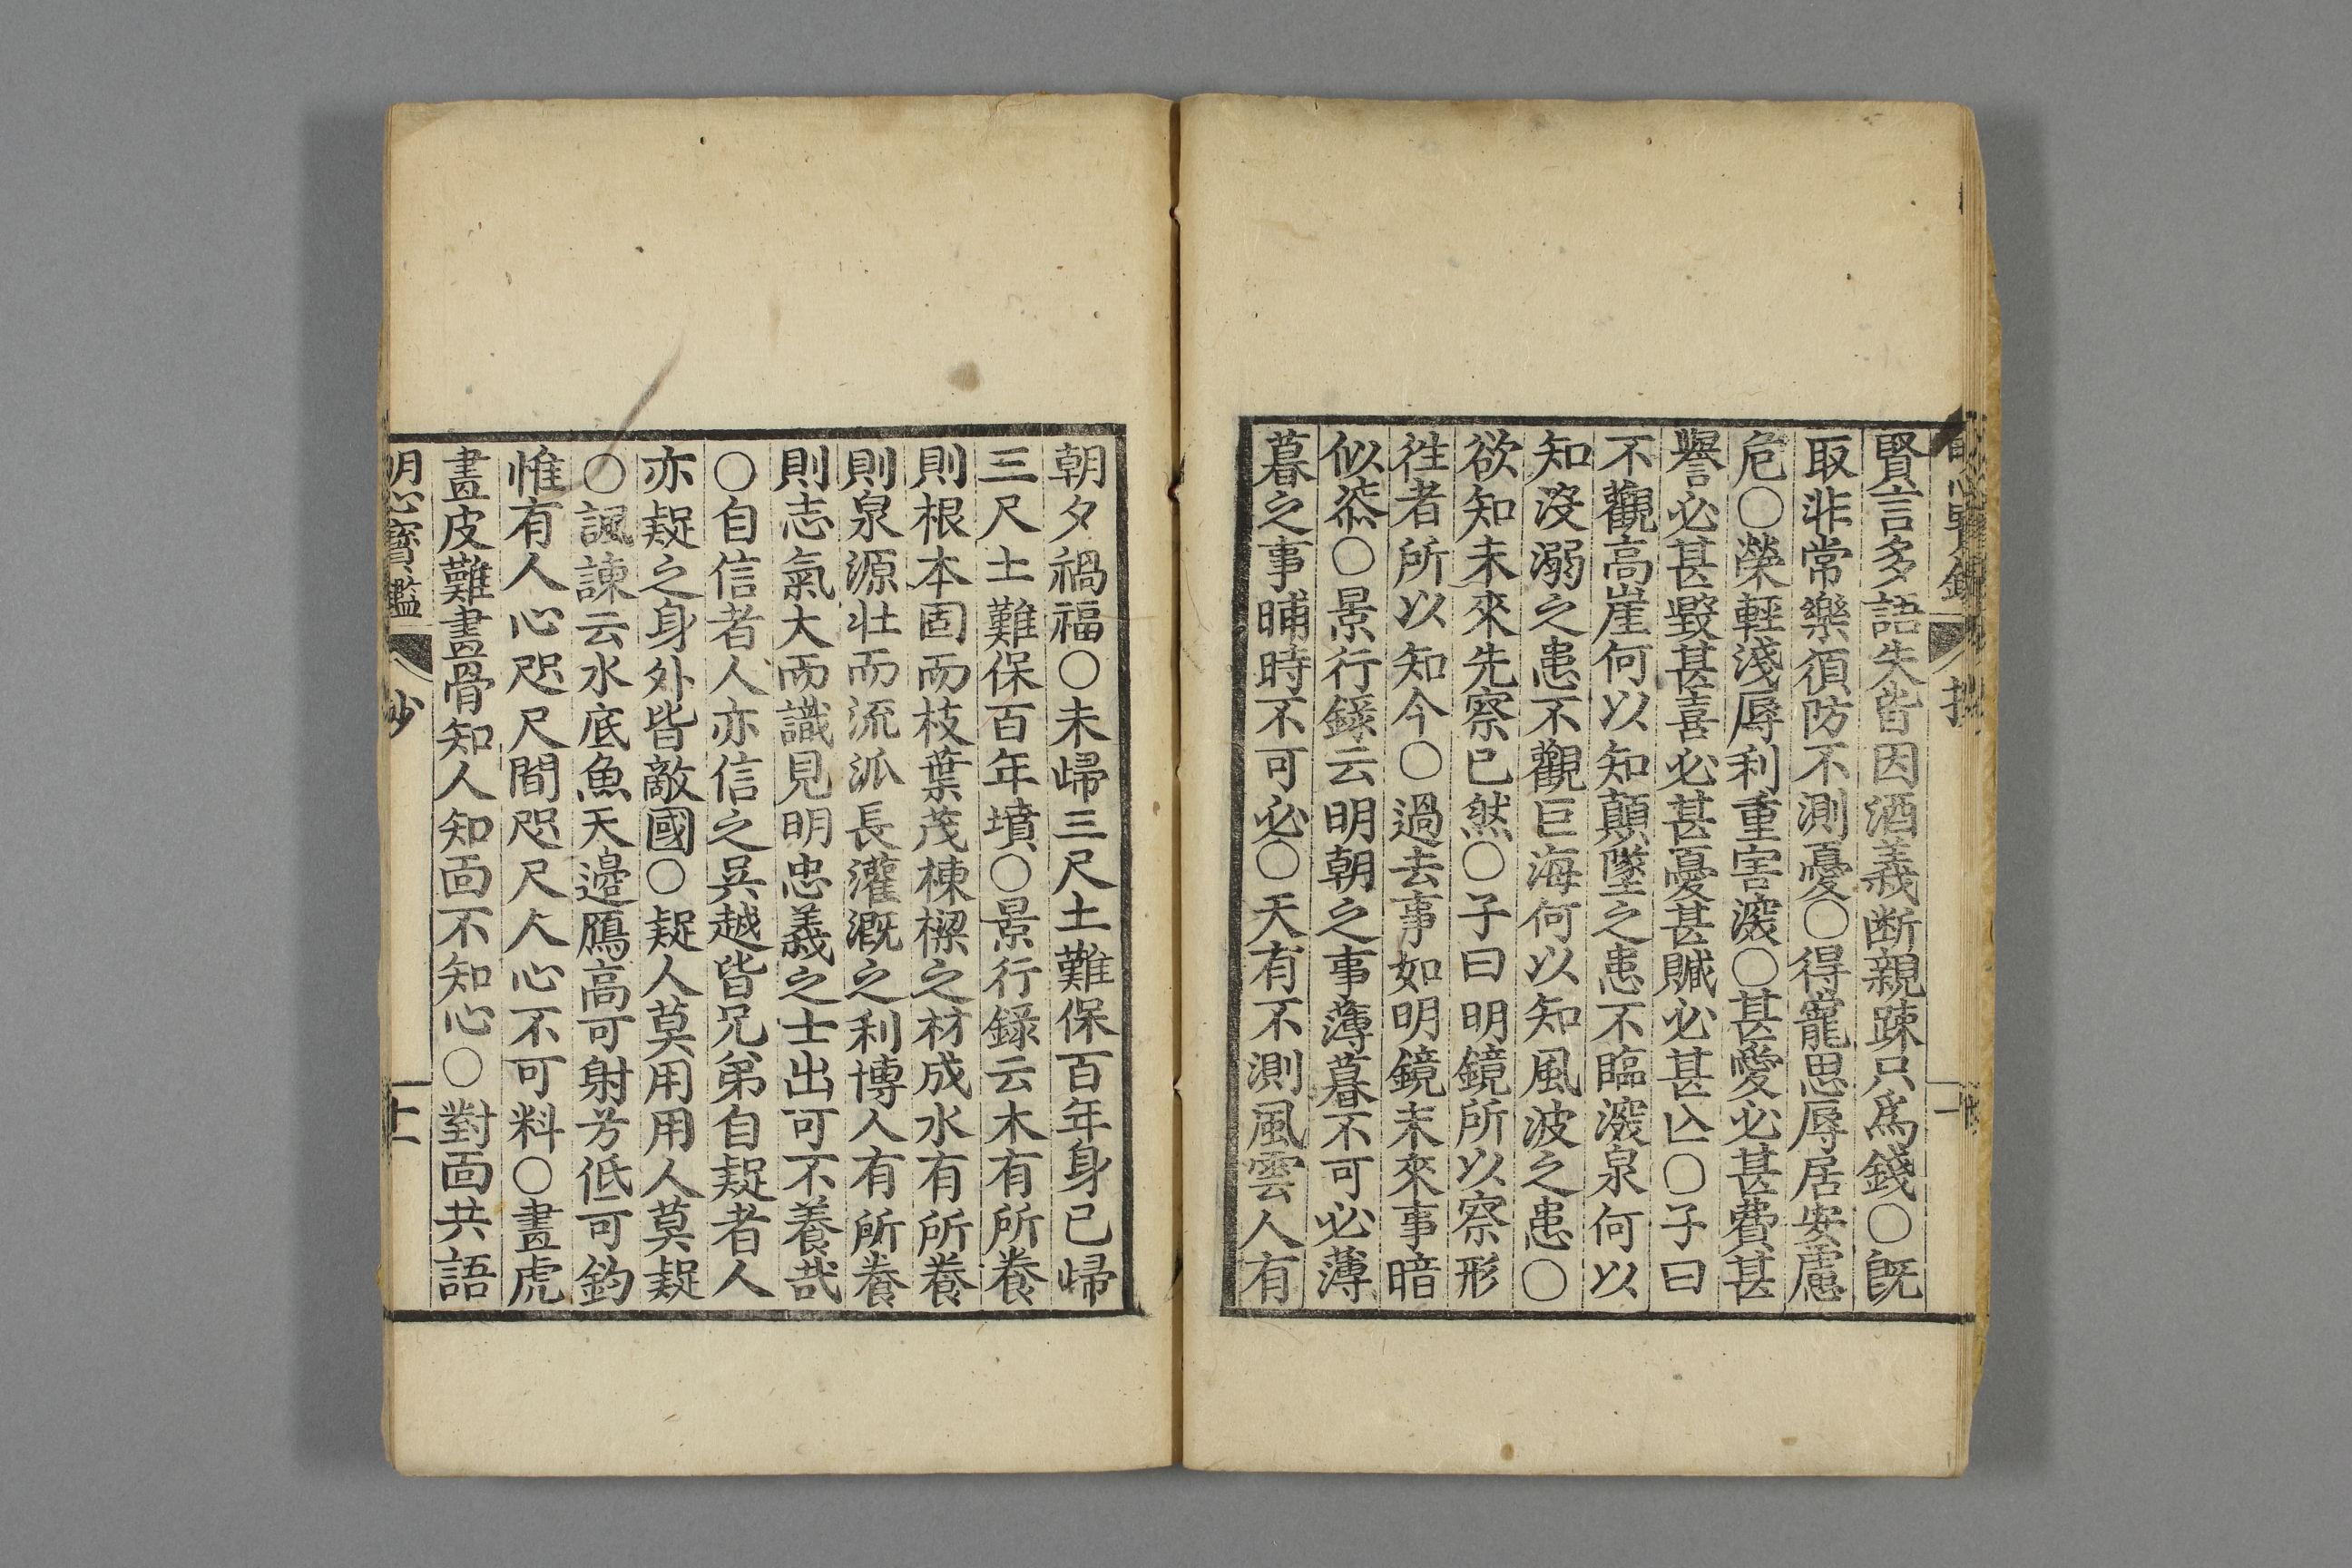 賢言多語失皆因酒義断親踈只爲錢○旣
取非常樂湏防不測憂○得寵思辱居安慮
危○榮輕淺辱利重害深○甚愛必甚費甚
譽必甚毀甚喜必甚憂甚贓必甚亾○子曰
不觀高崖何以知顛墜之患不臨深泉何以
知沒溺之患不觀巨海何以知風波之患○
欲知未來先察已然○子曰明鏡所以察形
徃者所以知今○過去事如明鏡未來事暗
似漆○景行錄云明朝之事薄暮不可必薄
暮之事晡時不可必○天有不測風雲人有
朝夕禍福○未歸三尺土難保百年身已歸
三尺土難保百年墳○景行錄云木有所養
則根本固而枝葉茂棟樑之材成水有所養
則泉源壯而流派長灌漑之利博人有所養
則志氣大而識見明忠義之士出可不養哉
○自信者人亦信之吳越皆兄弟自疑者人
亦疑之身外皆敵國○疑人莫用用人莫疑
○諷諫云水底魚天邊鴈高可射兮低可釣
惟有人心咫尺間咫尺人心不可料○畫虎
畫皮難畫骨知人知面不知心○對面共語
明心寶鑑 抄 十一